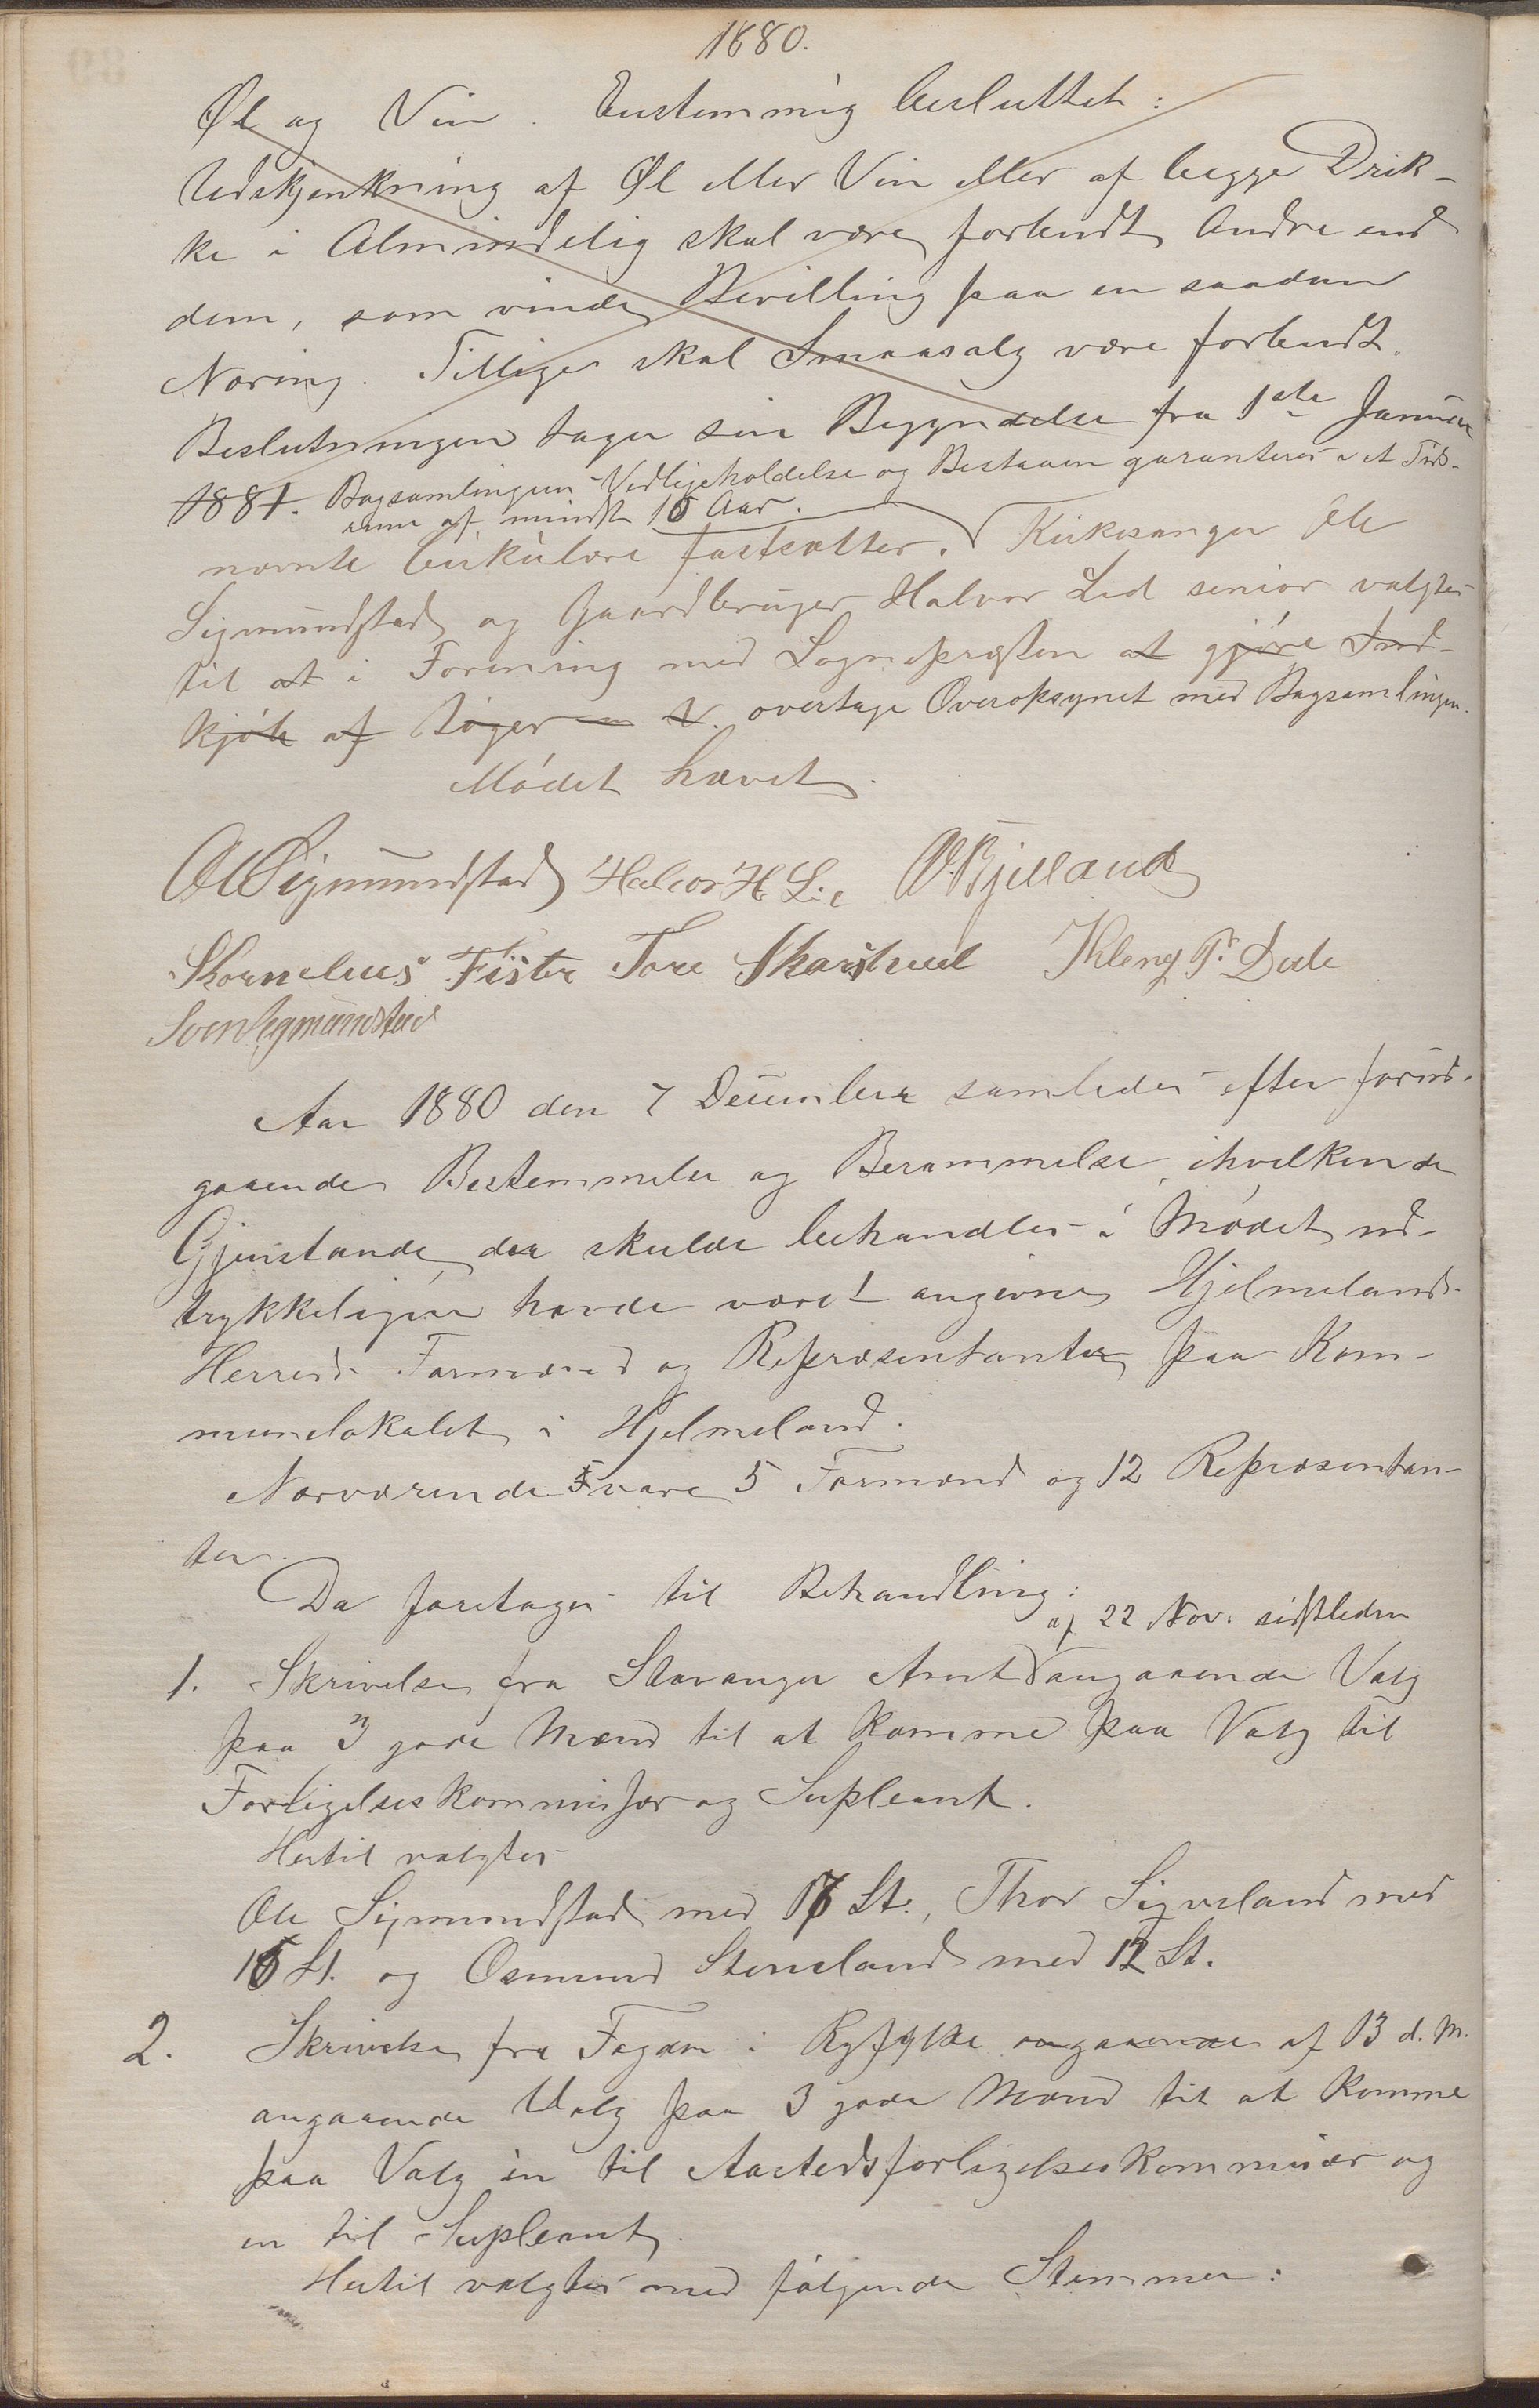 1880.
Øl og Vin. Enstemmig besluttet:
Udskjenkning af Øl eller Vin eller af begge Drik-
ke i Almindelig skal være forbudt Andre end
dem, som vinde Bevilling paa en saadan
Næring. Tillige skal Smaasalg være forbudt.
Beslutningen tager sin Begyndelse fra 1ste Januar
1881. Bogsamlingens Vedligeholdelse og Bestaaen garanteres i et Tids-
rum af mindst 10 Aar.
nævnte Cirkulære fastsætter. Kirkesanger Ole
Sigmundstad og Gaardbruger Halvor Lid senior valgtes
til at i Forening med Sognepresten at gjøre Ind-
kjøb af Bøger overtage Overopsynet med Bogsamlingen.
Mødet hævet.
Ol Sigmundstad Halvor H. Lie O. Bjelland
Skornelius Fister Tore Skarstveit Kleng P. Dale
Sven Segmundstad
Aar 1880 den 7 December samledes efter forud-
gaaende Bestemmelse og Berammelse, ihvilken de
Gjenstande, der skulde behandles i Mødet ud-
trykkeligen havde været angivne, Hjelmelands
Herreds Formænd og Repræsentanter paa Kom-
munelokalet i Hjelmeland.
Nærværende vare 5 Formænd og 12 Repræsentan-
ter.
Da foretages til Behandling:
af 22 Nov. sidstleden
1. Skrivelse fra Stavanger Amt angaaende Valg
paa 3 gode Mænd til at komme paa Valg til
Forligelseskommissær og Supleant.
Hertil valgtes
Ole Sigmundstad med 17 St., Thor Sigvesland med
16 St. og Osmund Stensland med 12 St.
2. Skrivelse fra Fogden i Ryfylke angaaende af 13 d. M.
angaaende Valg paa 3 gode Mænd til at komme
paa Valg én til Aastedsforligelseskommissær og
en til Supleant.
Hertil valgtes med følgende Stemmer: